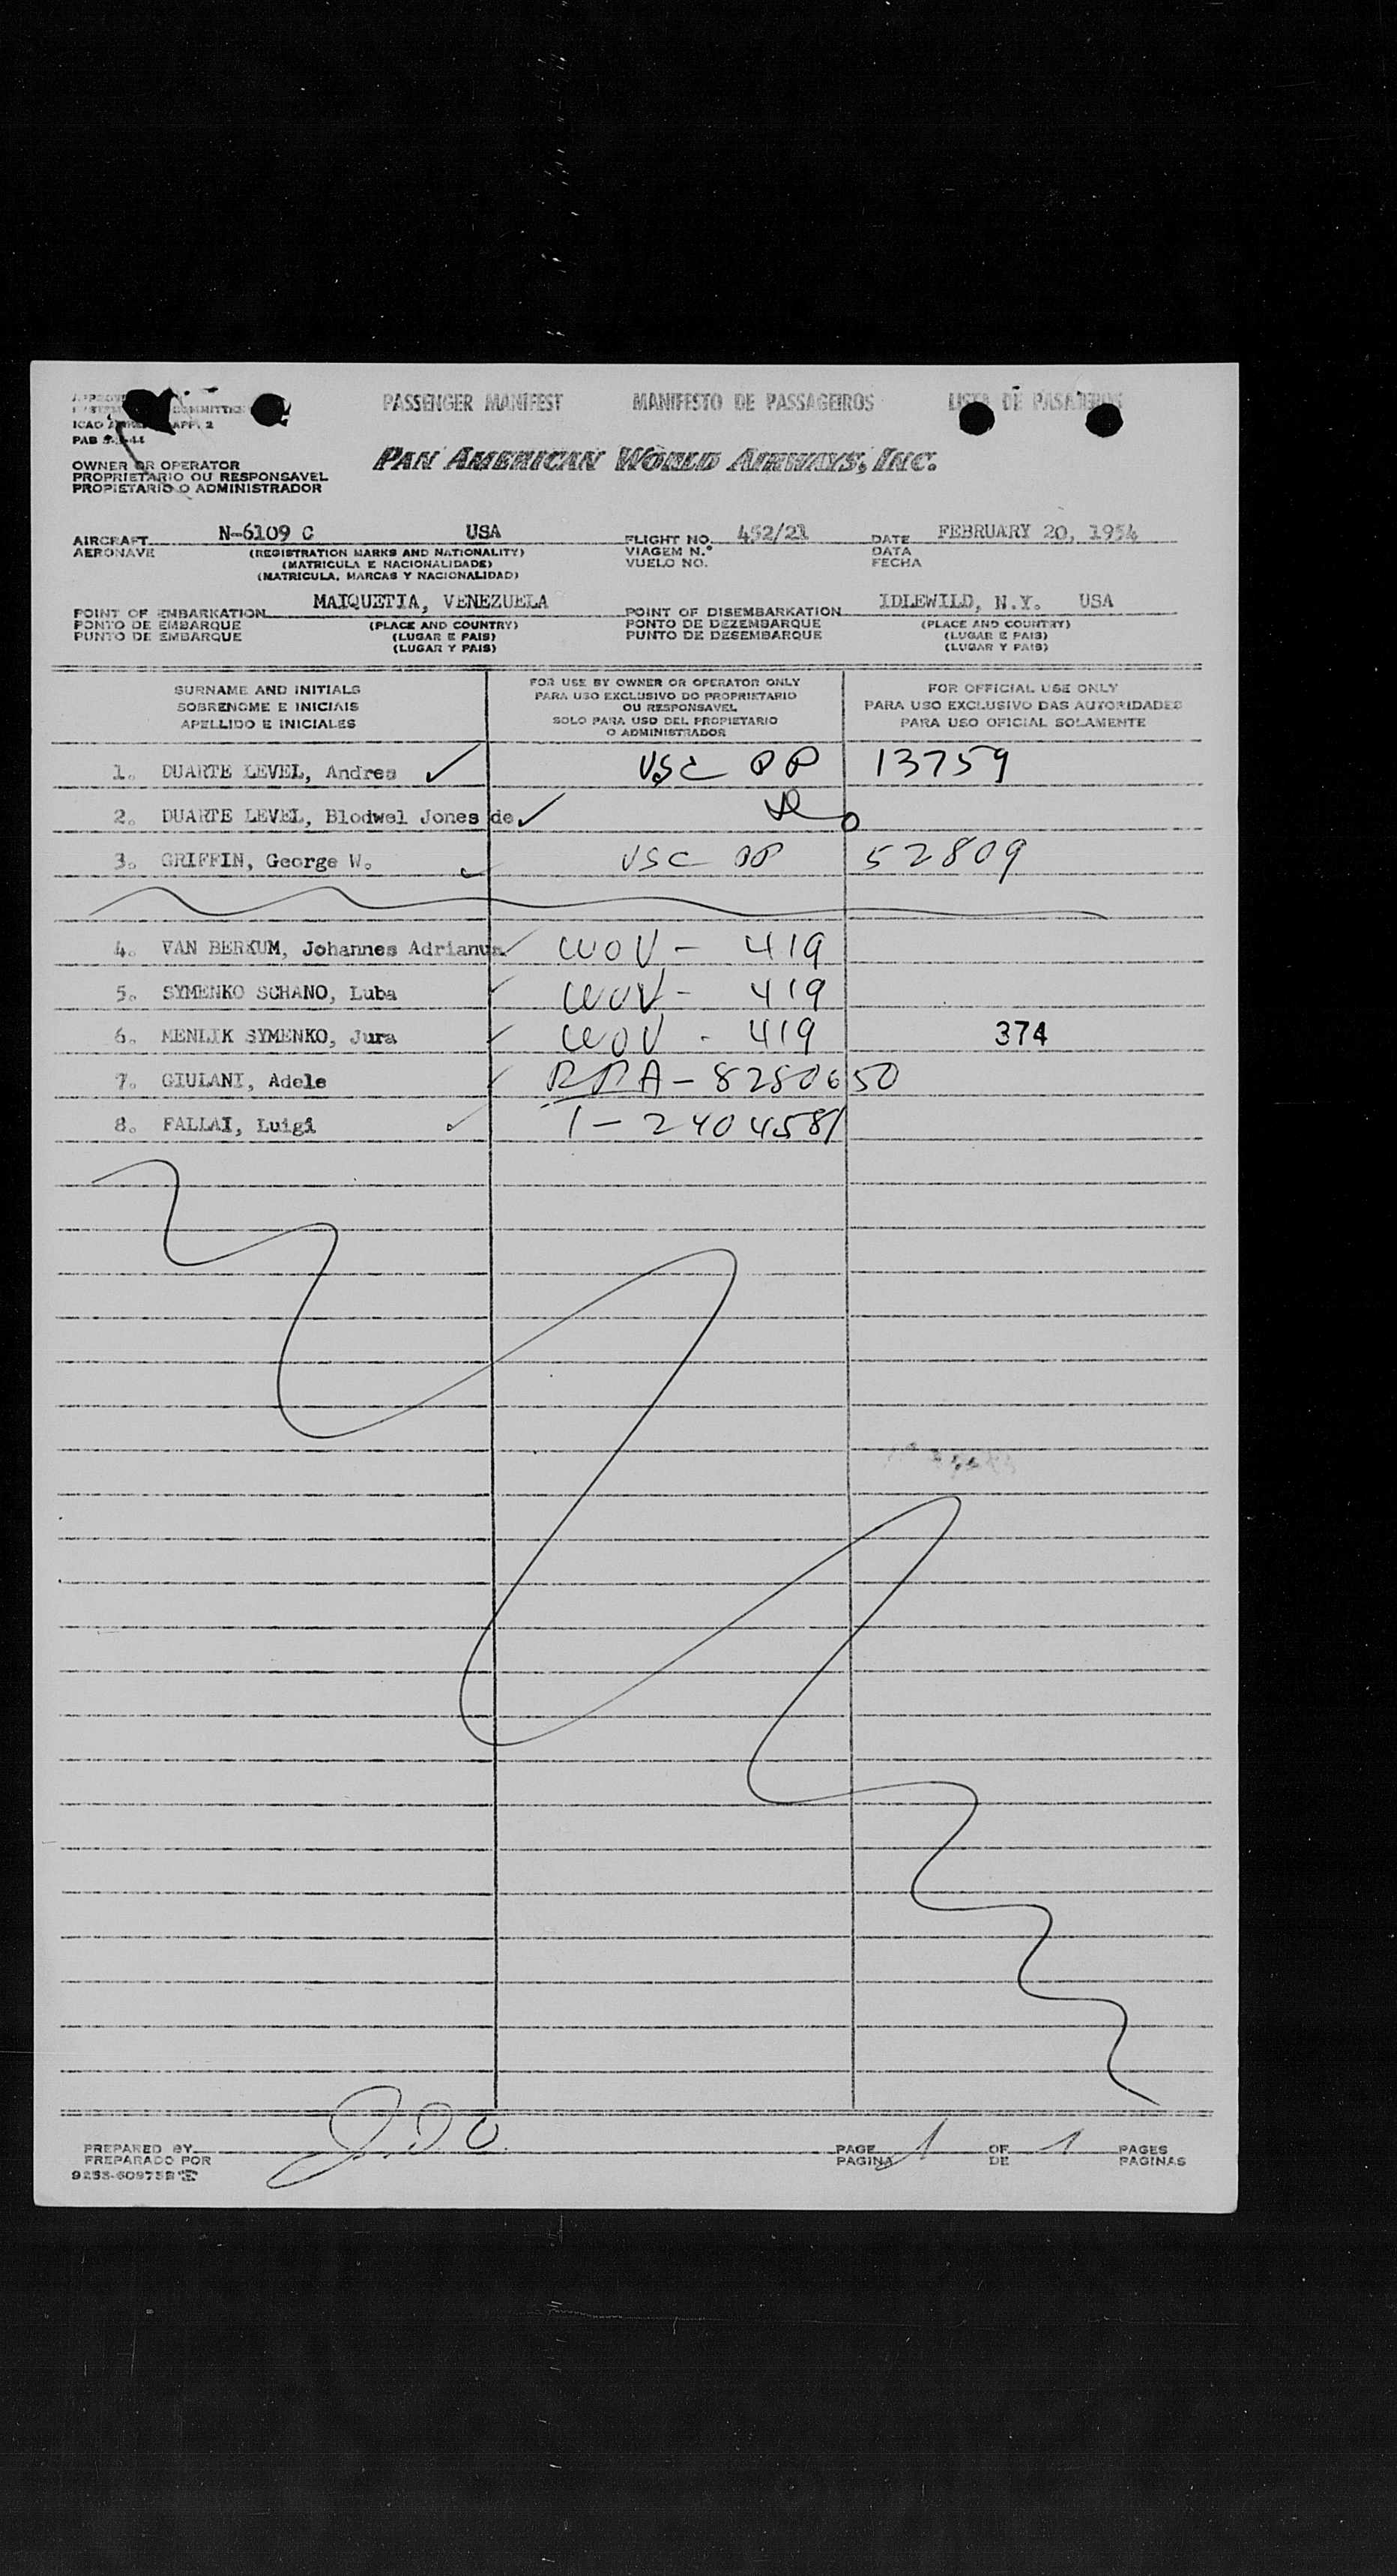 PASSENGER MANIFEST MANIFESTO DE PASSAGEIROS LISTA DE PASAJEROS
ICAO APP. 2
PAB
OWNER OR OPERATOR
PROPRIETARIO OU RESPONSAVEL
PROPIETARIO O ADMINISTRADOR
PAN AMERICAN WORLD AIRWAYS, INC.
AIRCRAFT N-6109 C USA FLIGHT NO. 452/21 DATE FEBRUARY 20, 1954
AERONAVE (REGISTRATION MARKS AND NATIONALITY) VIAGEM N.º DATA
(MATRICULA E NACIONALIDADE) VUELO NO. FECHA
(MATRICULA, MARCAS Y NACIONALIDAD)
POINT OF EMBARKATION MAIQUETIA, VENEZUELA POINT OF DISEMBARKATION IDLEWILD, N.Y. USA
PONTO DE EMBARQUE (PLACE AND COUNTRY) PONTO DE DEZEMBARQUE (PLACE AND COUNTRY)
PUNTO DE EMBARQUE (LUGAR E PAIS) PUNTO DE DESEMBARQUE (LUGAR E PAIS)
(LUGAR Y PAIS) (LUGAR Y PAIS)
SURNAME AND INITIALS
SOBRENOME E INICIAIS
APELLIDO E INICIALES
FOR USE BY OWNER OR OPERATOR ONLY
PARA USO EXCLUSIVO DO PROPRIETARIO
OU RESPONSAVEL
SOLO PARA USO DEL PROPIETARIO
O ADMINISTRADOR
FOR OFFICIAL USE ONLY
PARA USO EXCLUSIVO DAS AUTORIDADES
PARA USO OFICIAL SOLAMENTE
1. DUARTE LEVEL, Andres ✓ USC PP 13759
2. DUARTE LEVEL, Blodwel Jones de ✓
3. GRIFFIN, George W. ✓ USC PP 52809
4. VAN BERKUM, Johannes Adrianus ✓ WOV - 419
5. SYMENKO SCHANO, Luba ✓ WOV - 419
6. MENLIK SYMENKO, Jura ✓ WOV - 419 374
7. GIULANI, Adele ✓ RRA - 8280650
8. FALLAI, Luigi ✓ I - 2404581
PREPARED BY PAGE 1 OF 1 PAGES
PREPARADO POR PAGINA DE PAGINAS